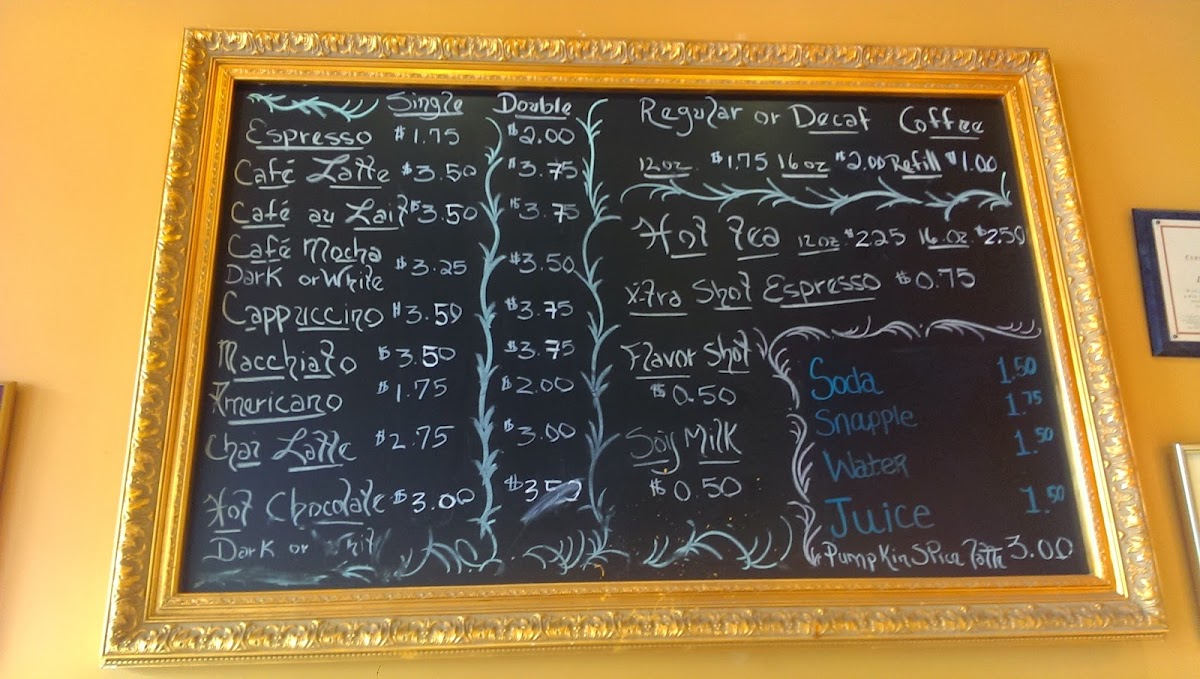 Single Double
Espresso $1.75 $2.00
Café Latte $3.50 $3.75
Café au Lait $3.50 $3.75
Café Mocha
Dark or White $3.25 $3.50
Cappuccino $3.50 $3.75
Macchiato $3.50 $3.75
Americano $1.75 $2.00
Chai Latte $2.75 $3.00
Hot Chocolate $3.00 $3.50
Dark or Whit
Regular or Decaf Coffee
12oz $1.75 16oz $2.00 Refill $1.00
Hot Tea 12oz $2.25 16oz $2.50
X-tra Shot Espresso $0.75
Flavor Shot
$0.50
Soy Milk
$0.50
Soda 1.50
Snapple 1.75
Water 1.50
Juice 1.50
Pumpkin Spice Latte 3.00